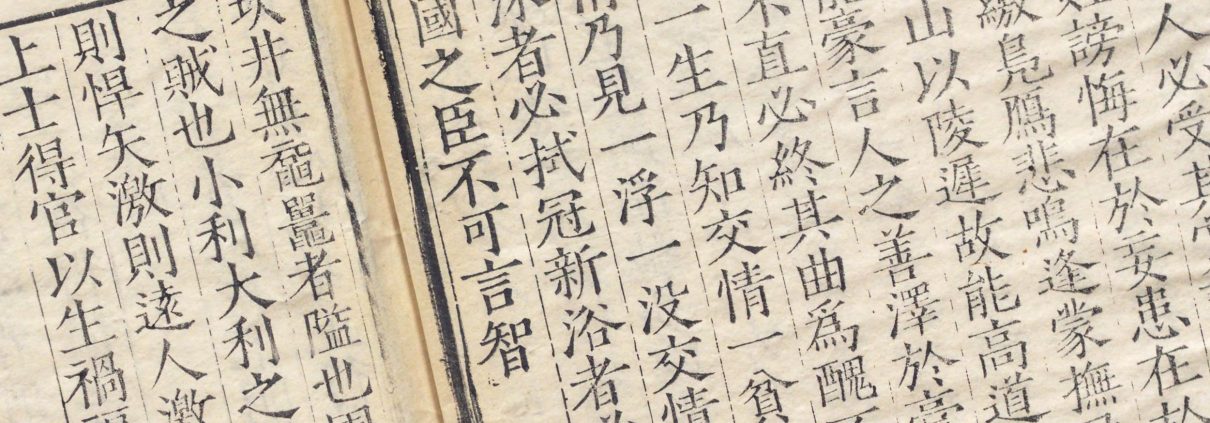 人必受其
謗悔在於妄患在於
繳鳧鴈悲鳴逢蒙撫
山以陵遲故能高道
豪言人之善澤於膏
不直必終其曲爲醜
一生乃知交情一貧
情乃見一浮一没交情
沐者必拭冠新浴者必
國之臣不可言智
坎井無黿鼉者隘也
之賊也小利大利之
則悍矢激則逺人激
上士得官以生禍